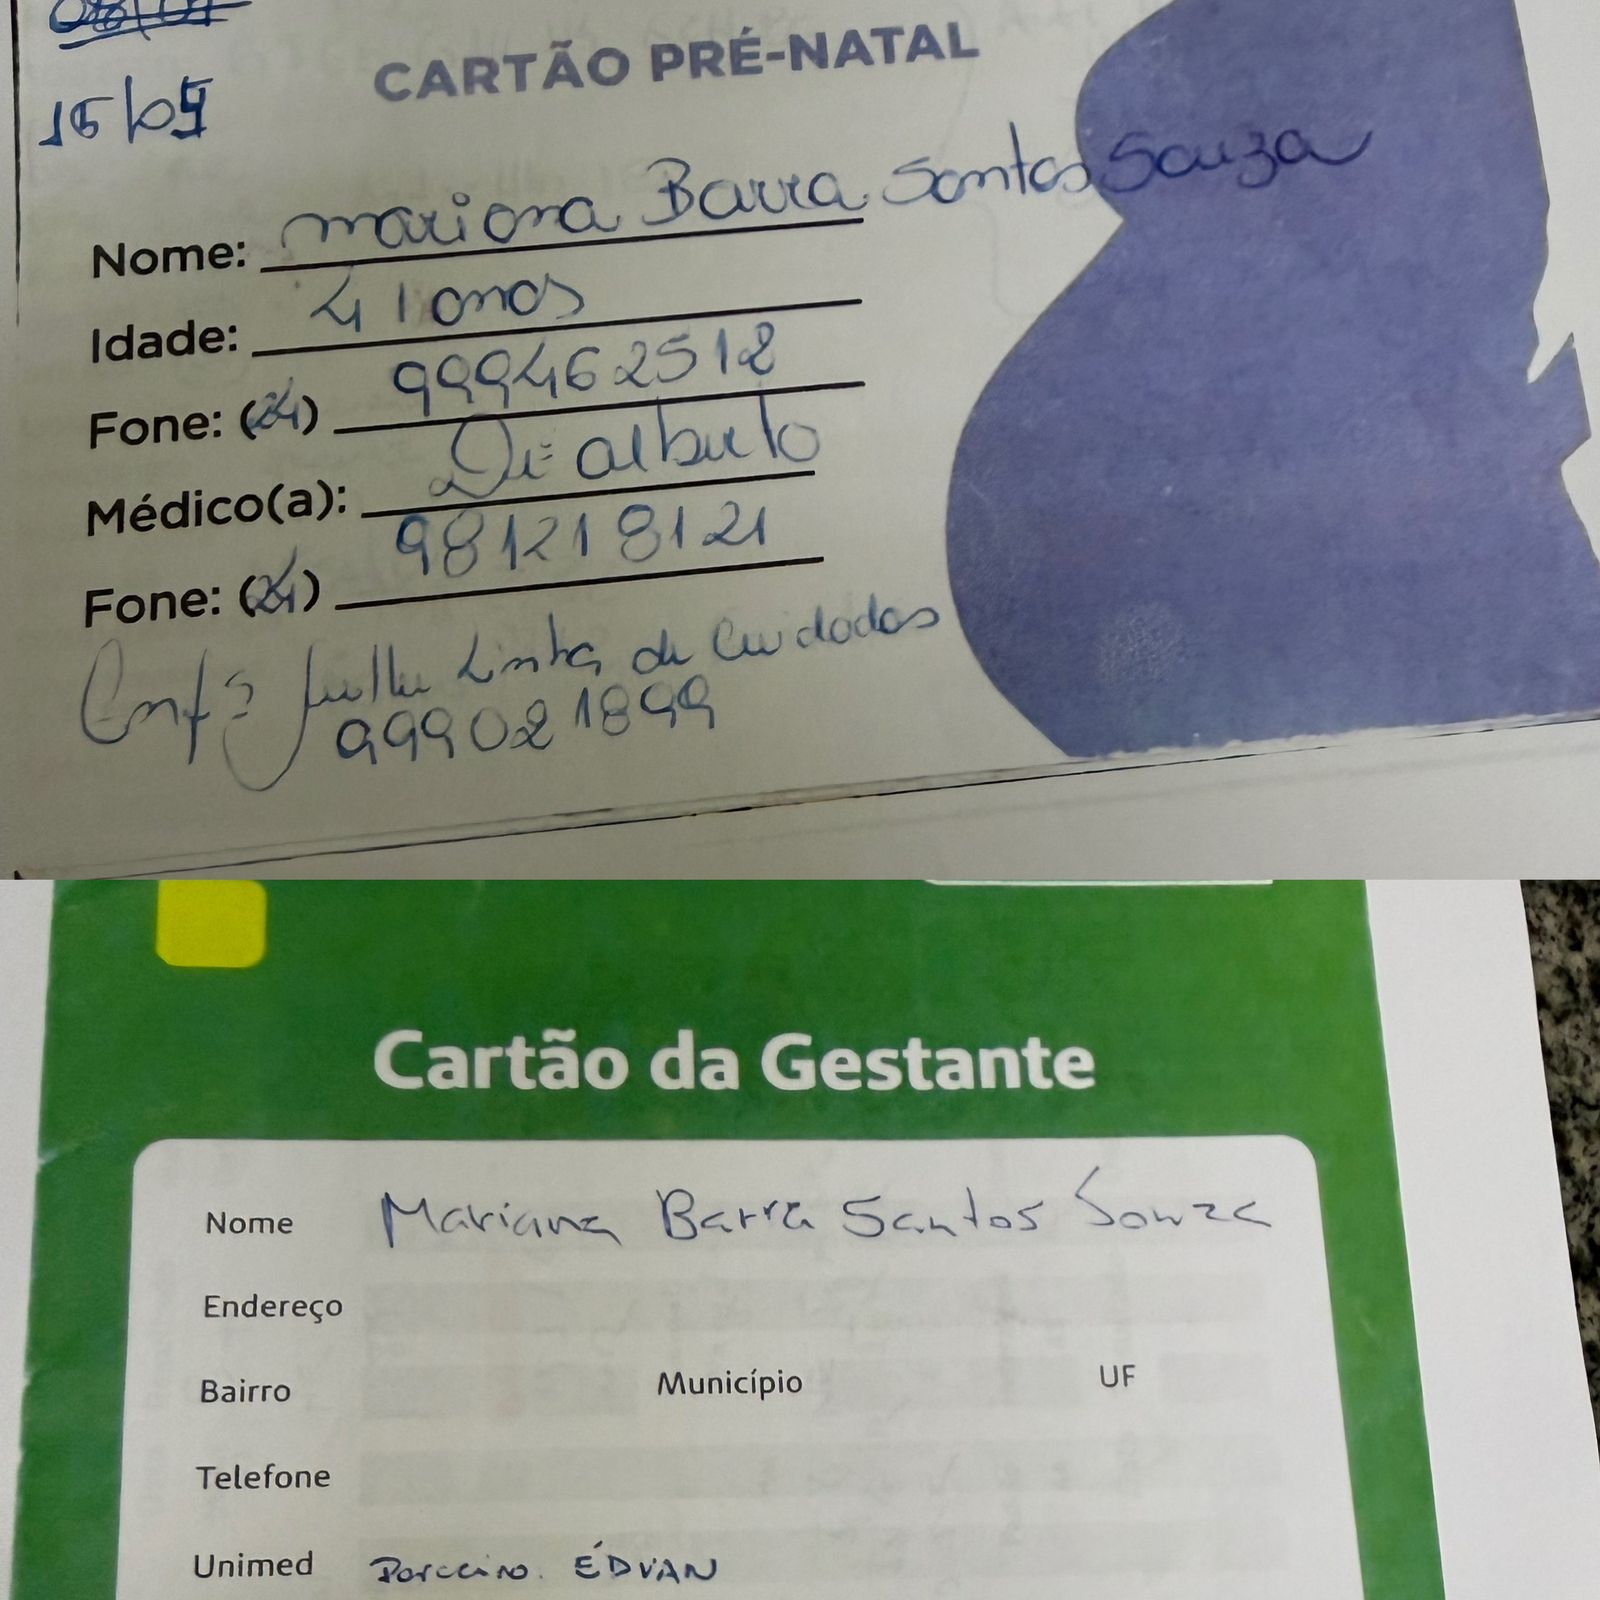 CARTÃO PRÉ-NATAL
Nome: Mariana Barra Santos Souza
Idade: 41 anos
Fone: (24) 999462512
Médico(a): Dr. Alberto
Fone: (24) 981218121
Enfª Linha de Cuidados
999021899
Cartão da Gestante
Nome Mariana Barra Santos Souza
Endereço
Bairro Município UF
Telefone
Unimed Parceiro. ÉDVAN